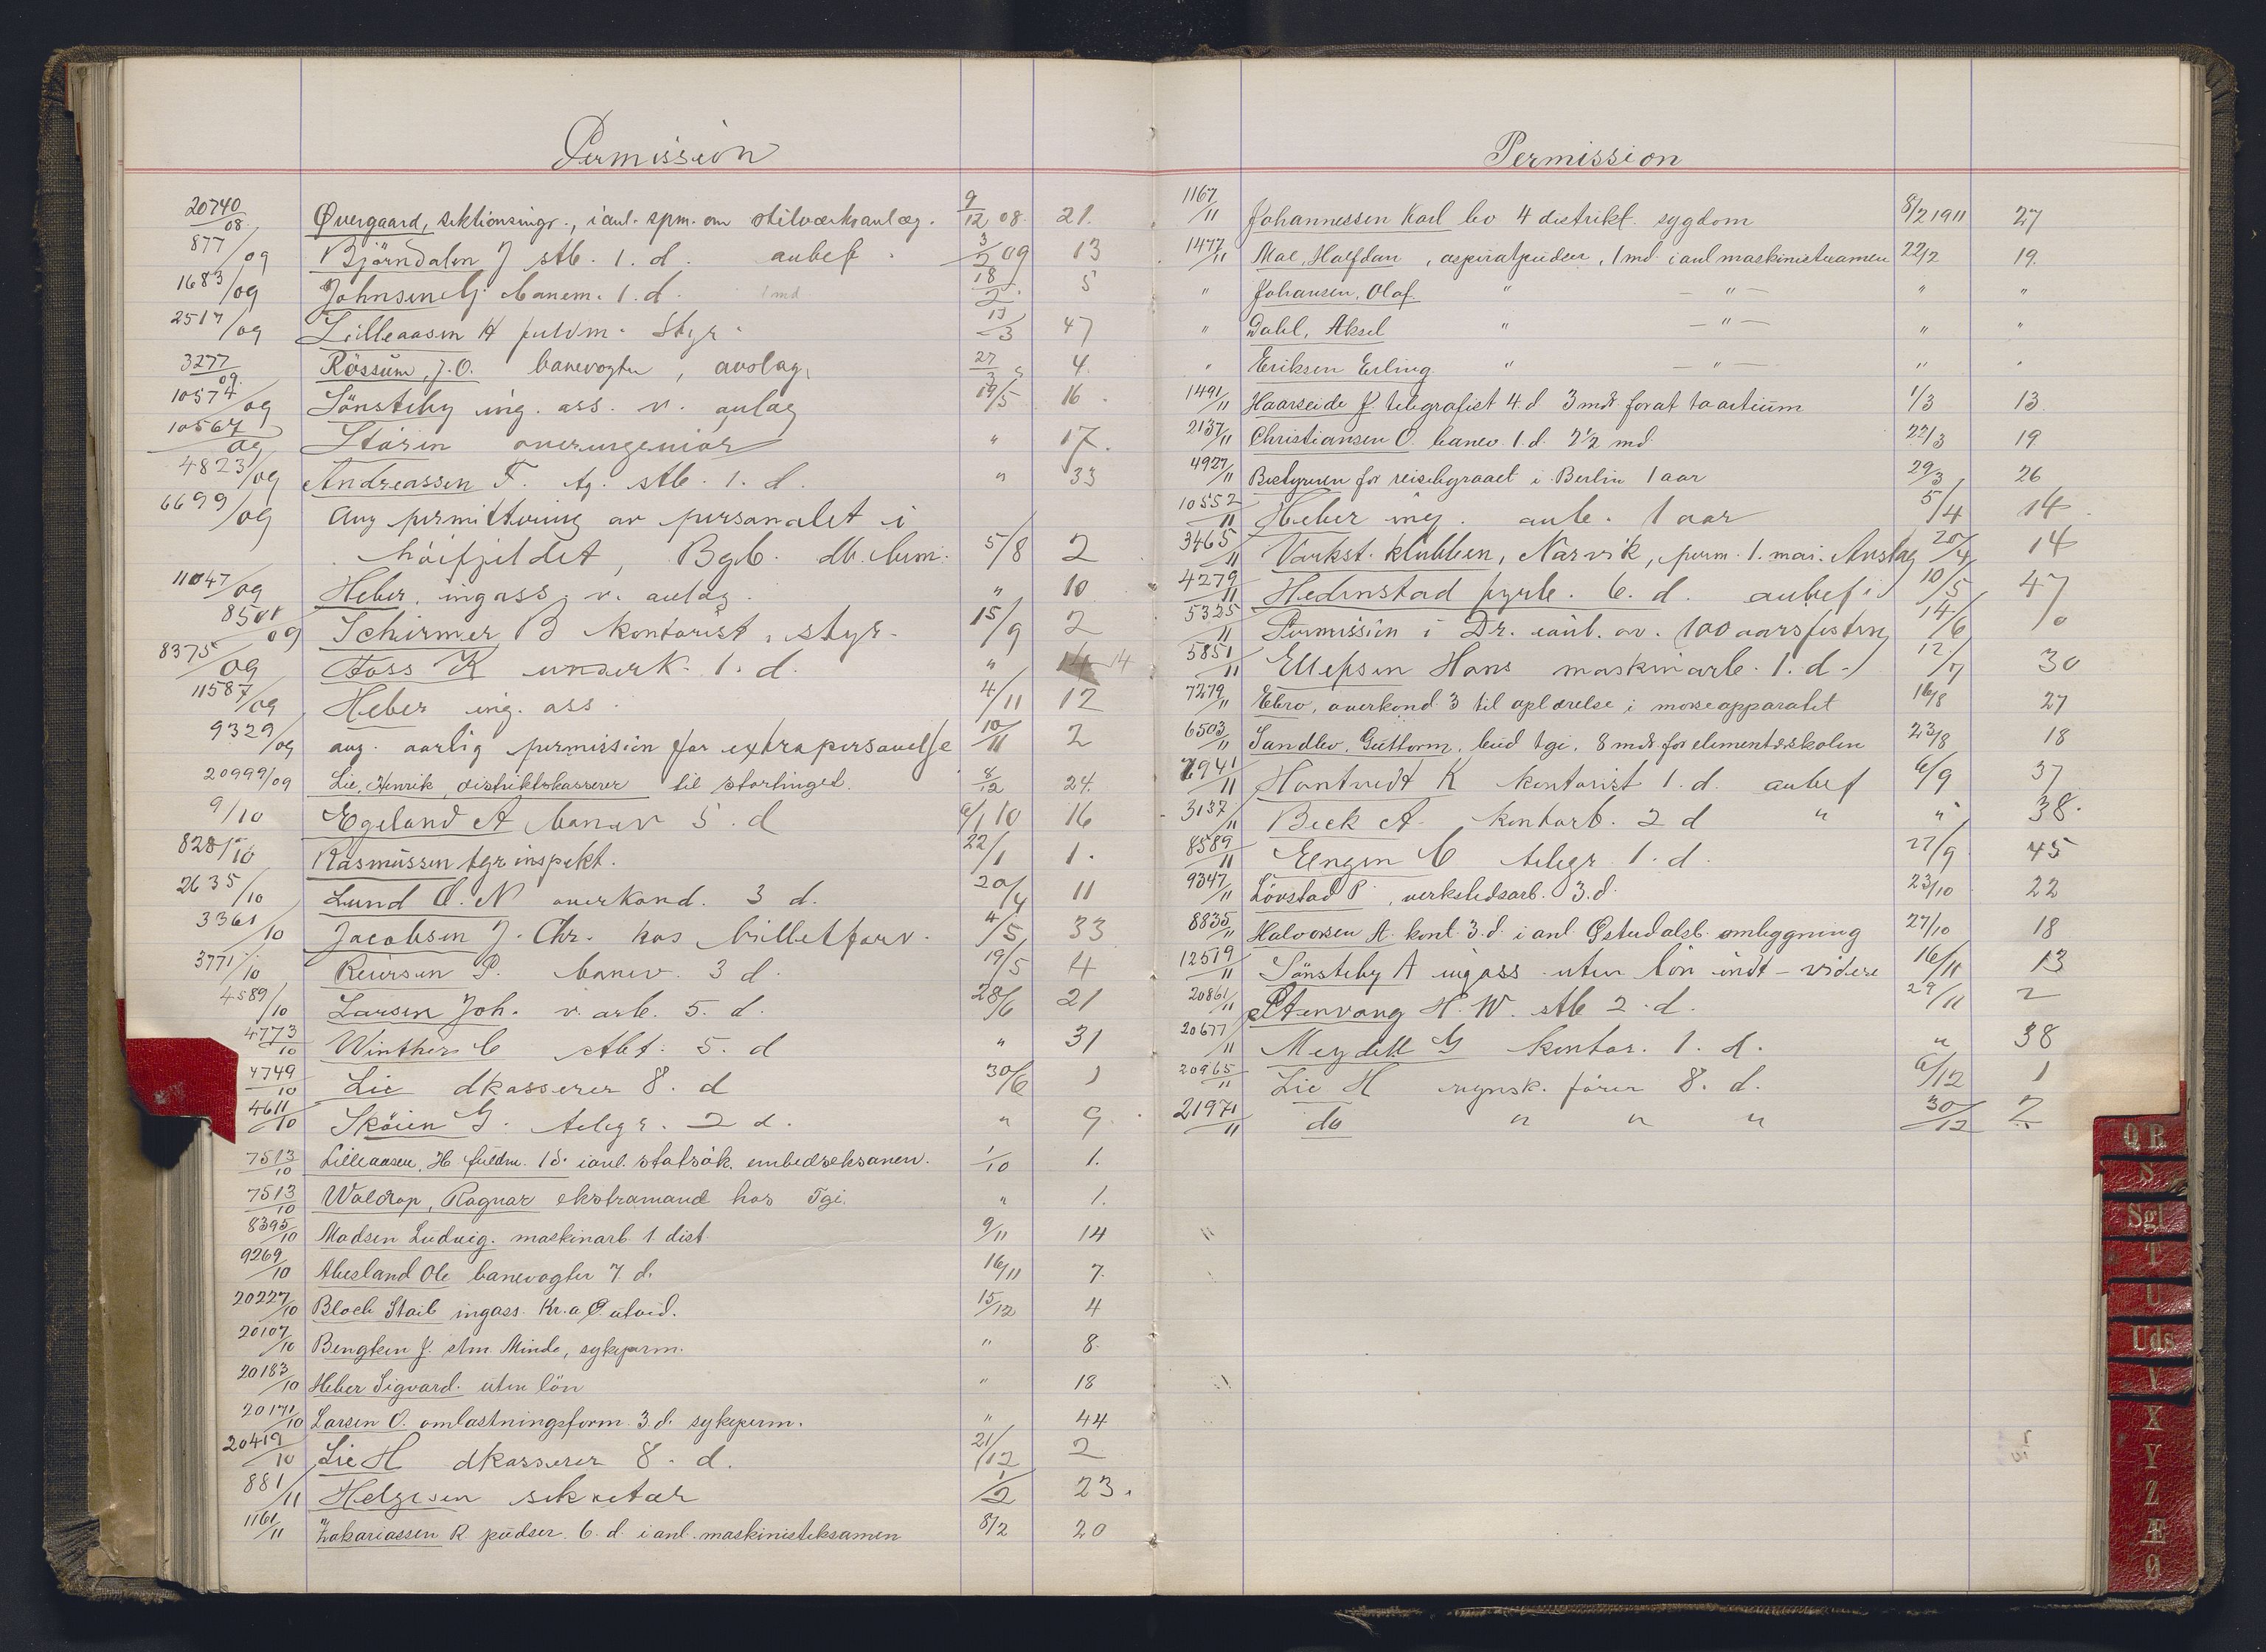 Permission
20740/08 Øvergaard, sektionsingr., i anl. spm. om stilværksanlæg. 9/12 08. 21.
877/09 Björndalen J stb. 1. d. anbef. 3/2 09 13
1683/09 Johnsen banem. 1. d. 1 md 18/2 5
2517/09 Lilleaasen H fuldm. Styr. 13/3 47
3277/09 Rössum, J. O. banevogter, avslag, 27/3 4.
10574/09 Sönsteby ing. ass. v. anlæg 19/5 16.
10567/09 Stören overingeniör " 17.
4823/09 Andreassen F. tg. stb. 1. d. " 33
6699/09 ang permittering av personalet i
höifjeldet, Bgb. db. bem. 5/8 2
11047/09 Heber, ingass, v. anlæg. " 10
8501/09 Schirmer B kontorist, styr. 15/9 2
8375/09 Foss K underk. 1. d. " 14 14
11587/09 Heber ing. ass. 4/11 12
9329/09 ang. aarlig permission for extrapersonelle 10/11 2
20999/09 Lie, Henrik, distriktskasserer til stortinget. 8/12 24.
9/10 Egeland A banev 5. d 6/1 10 16
828/10 Rasmussen tgr inspekt. 22/1 1.
2635/10 Lund O. N overkond. 3 d. 20/4 11
3361/10 Jacobsen J. Chr. kas billetforv. 4/5 33
3771/10 Reiersen P. banev. 3 d. 19/5 4
4589/10 Larsen Joh. v. arb. 5. d. 28/6 21
4773/10 Winther C stbt. 5. d " 31
4749/10 Lie dkasserer 8. d 30/6 1
4611/10 Sköien G. telegr. 2 d. " 9.
7513/10 Lilleaasen, H fuldm. 1 d. i anl. statsök. embedseksamen. 1/10 1.
7513/10 Waldrop, Ragnar ekstramand hos Tgi. " 1.
8395/10 Madsen Ludvig. maskinarb. 1 dist. 9/11 14
9269/10 Abesland Ole banevogter 7. d. 16/11 7.
20227/10 Bloch Staib ingass. Kr.a Ø. utvid. 15/12 4
20107/10 Bengken J. stm. Minde, sykeperm. " 8.
20183/10 Heber Sigvard. uten lön " 18
20171/10 Larsen O. omlastningsform. 3. d. sykeperm. " 44
20419/10 Lie H dkasserer 8. d. 21/12 2
881/11 Helgesen sekretær 1/2 23.
1161/11 Zakariassen R pudser. 6. d. i anl. maskinisteksamen 8/2 20
Permission
1167/11 Johannessen Karl bv 4 distrikt. sygdom 8/2 1911 27
1477/11 Moe, Halfdan, aspirantpudser, 1 md. i anl maskinisteksamen 22/2 19.
" Johansen, Olaf. " — " — " "
" Dahl, Aksel " — " — " "
" Eriksen Erling. " — " — " "
1491/11 Haarseide J. telegrafist 4. d 3 mdr. for at ta artium 1/3 13.
2137/11 Christiansen O. banev. 1. d. 2½ md. 22/3 19
4927/11 Bestyreren for reisebyraaet i Berlin 1 aar 29/3 26
10552/11 Heber ing. anb. 1 aar 5/4 14.
3465/11 Verkst. klubben, Narvik, perm. 1. mai. Avslag 20/4 14
4279/11 Hedenstad fyrb. 6. d. anbef. 10/5 47
5325/11 Permission i Dr. anl. av. 100 aarsfesten 14/6 10
5851/11 Ellefsen Hans maskinarb. 1. d. 12/7 30
7279/11 Ebro, overkond. 3 til oplærelse i morseapparatet 16/8 27
6503/11 Sandbo, Guttorm, bud tgi. 8 mdr. for elementærskolen 23/8 18
7941/11 Hontvedt K kontorist 1. d. anbef 6/9 37
3137/11 Beck A. kontorb. 2 d " " 38.
8589/11 Elngen C telegr. 1. d. 27/9 45
9347/11 Lövstad P., verkstedsarb. 3. d. 23/10 22
8835/11 Halvorsen A. kont. 3. d. i anl Østerdalsb. ombygning 27/10 18
12519/11 Sönsteby A ingass uten lön indt - videre 16/11 13
20861/11 Stenvang H. W. stb 2. d. 29/11 2
20677/11 Meydell G kontor. 1. d. " 38
20965/11 Lie H regnsk. förer 8. d. 6/12 1
21971/11 do " " " 30/12 2
"
Q R
S
Sgl
T
U
Uds
V
X
Y
Z
Æ
Ø